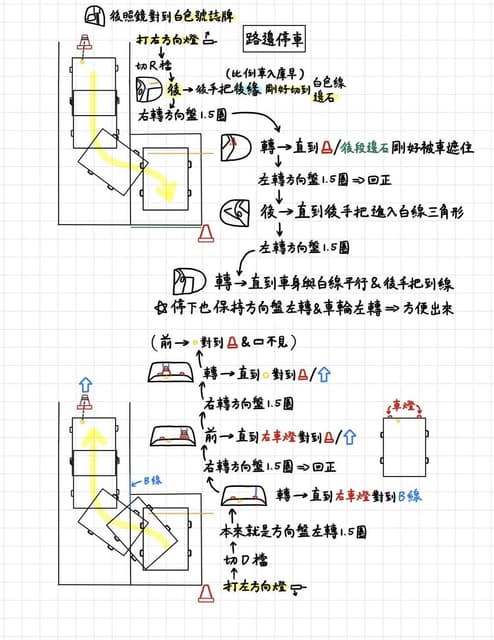 後照鏡對到白色號誌牌
路邊停車
打右方向燈
切R檔
(比倒車入庫早)
後→後手把後緣剛好切到白色線
邊石
右轉方向盤1.5圈
轉→直到/後段邊石剛好被車遮住
左轉方向盤1.5圈⇒回正
後→直到後手把進入白線三角形
左轉方向盤1.5圈
轉→直到車身與白線平行&後手把到線
☆停下也保持方向盤左轉&車輪左轉⇒方便出來
(前→對到&不見)
轉→直到對到/⇧
右轉方向盤1.5圈
前→直到右車燈對到/⇧
車燈
右轉方向盤1.5圈⇒回正
B線
轉→直到右車燈對到B線
本來就是方向盤左轉1.5圈
切D檔
打左方向燈